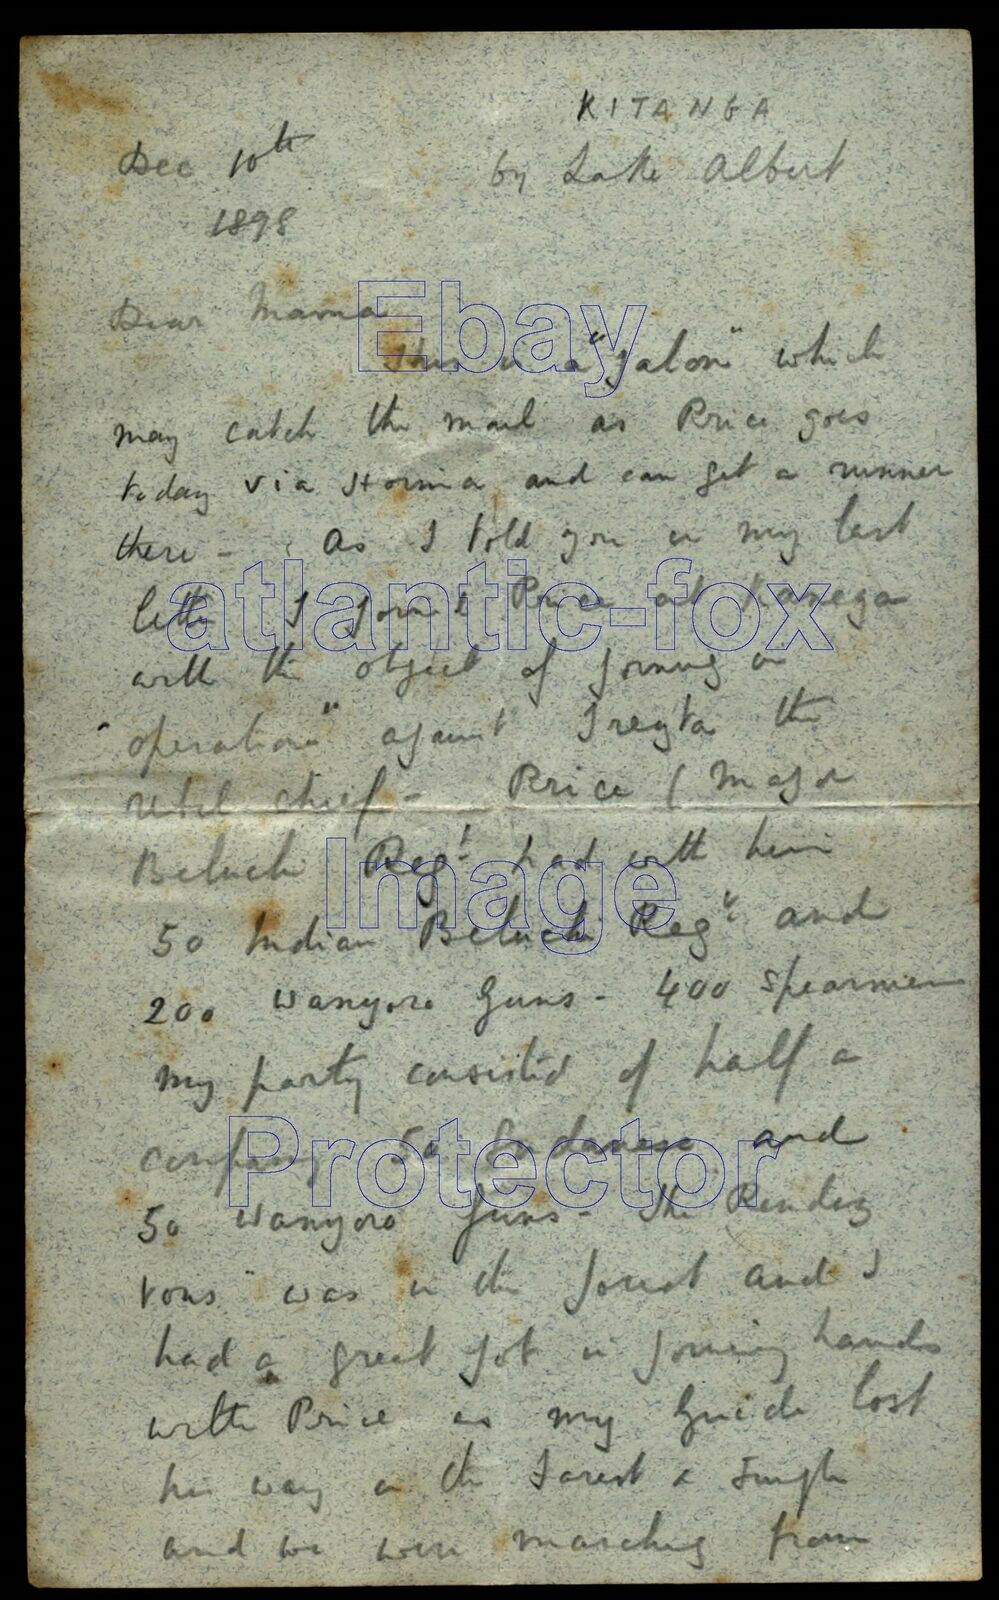 KITANGA
Dec 10th by Lake Albert
1898
Dear Mama
This is a "galop" which
may catch the mail as Price goes
today via Hoima and can get a runner
there - As I told you in my last
letter I joined Price at Kahega
with the object of joining in
"operations" against Ireyta the
rebel chief - Price (Major
Beluchi Regt had with him
50 Indian Beluchi Regt and
200 Wanyoro Guns - 400 Spearmen
my party consisted of half a
company 50 Sudanese and
50 Wanyoro Guns - The Rendez
vous" was in the forest and I
had a great job in joining hands
with Price as my Guide lost
his way in the Forest & Jungle
and we were marching from
Ebay
atlantic-fox
Image
Protector